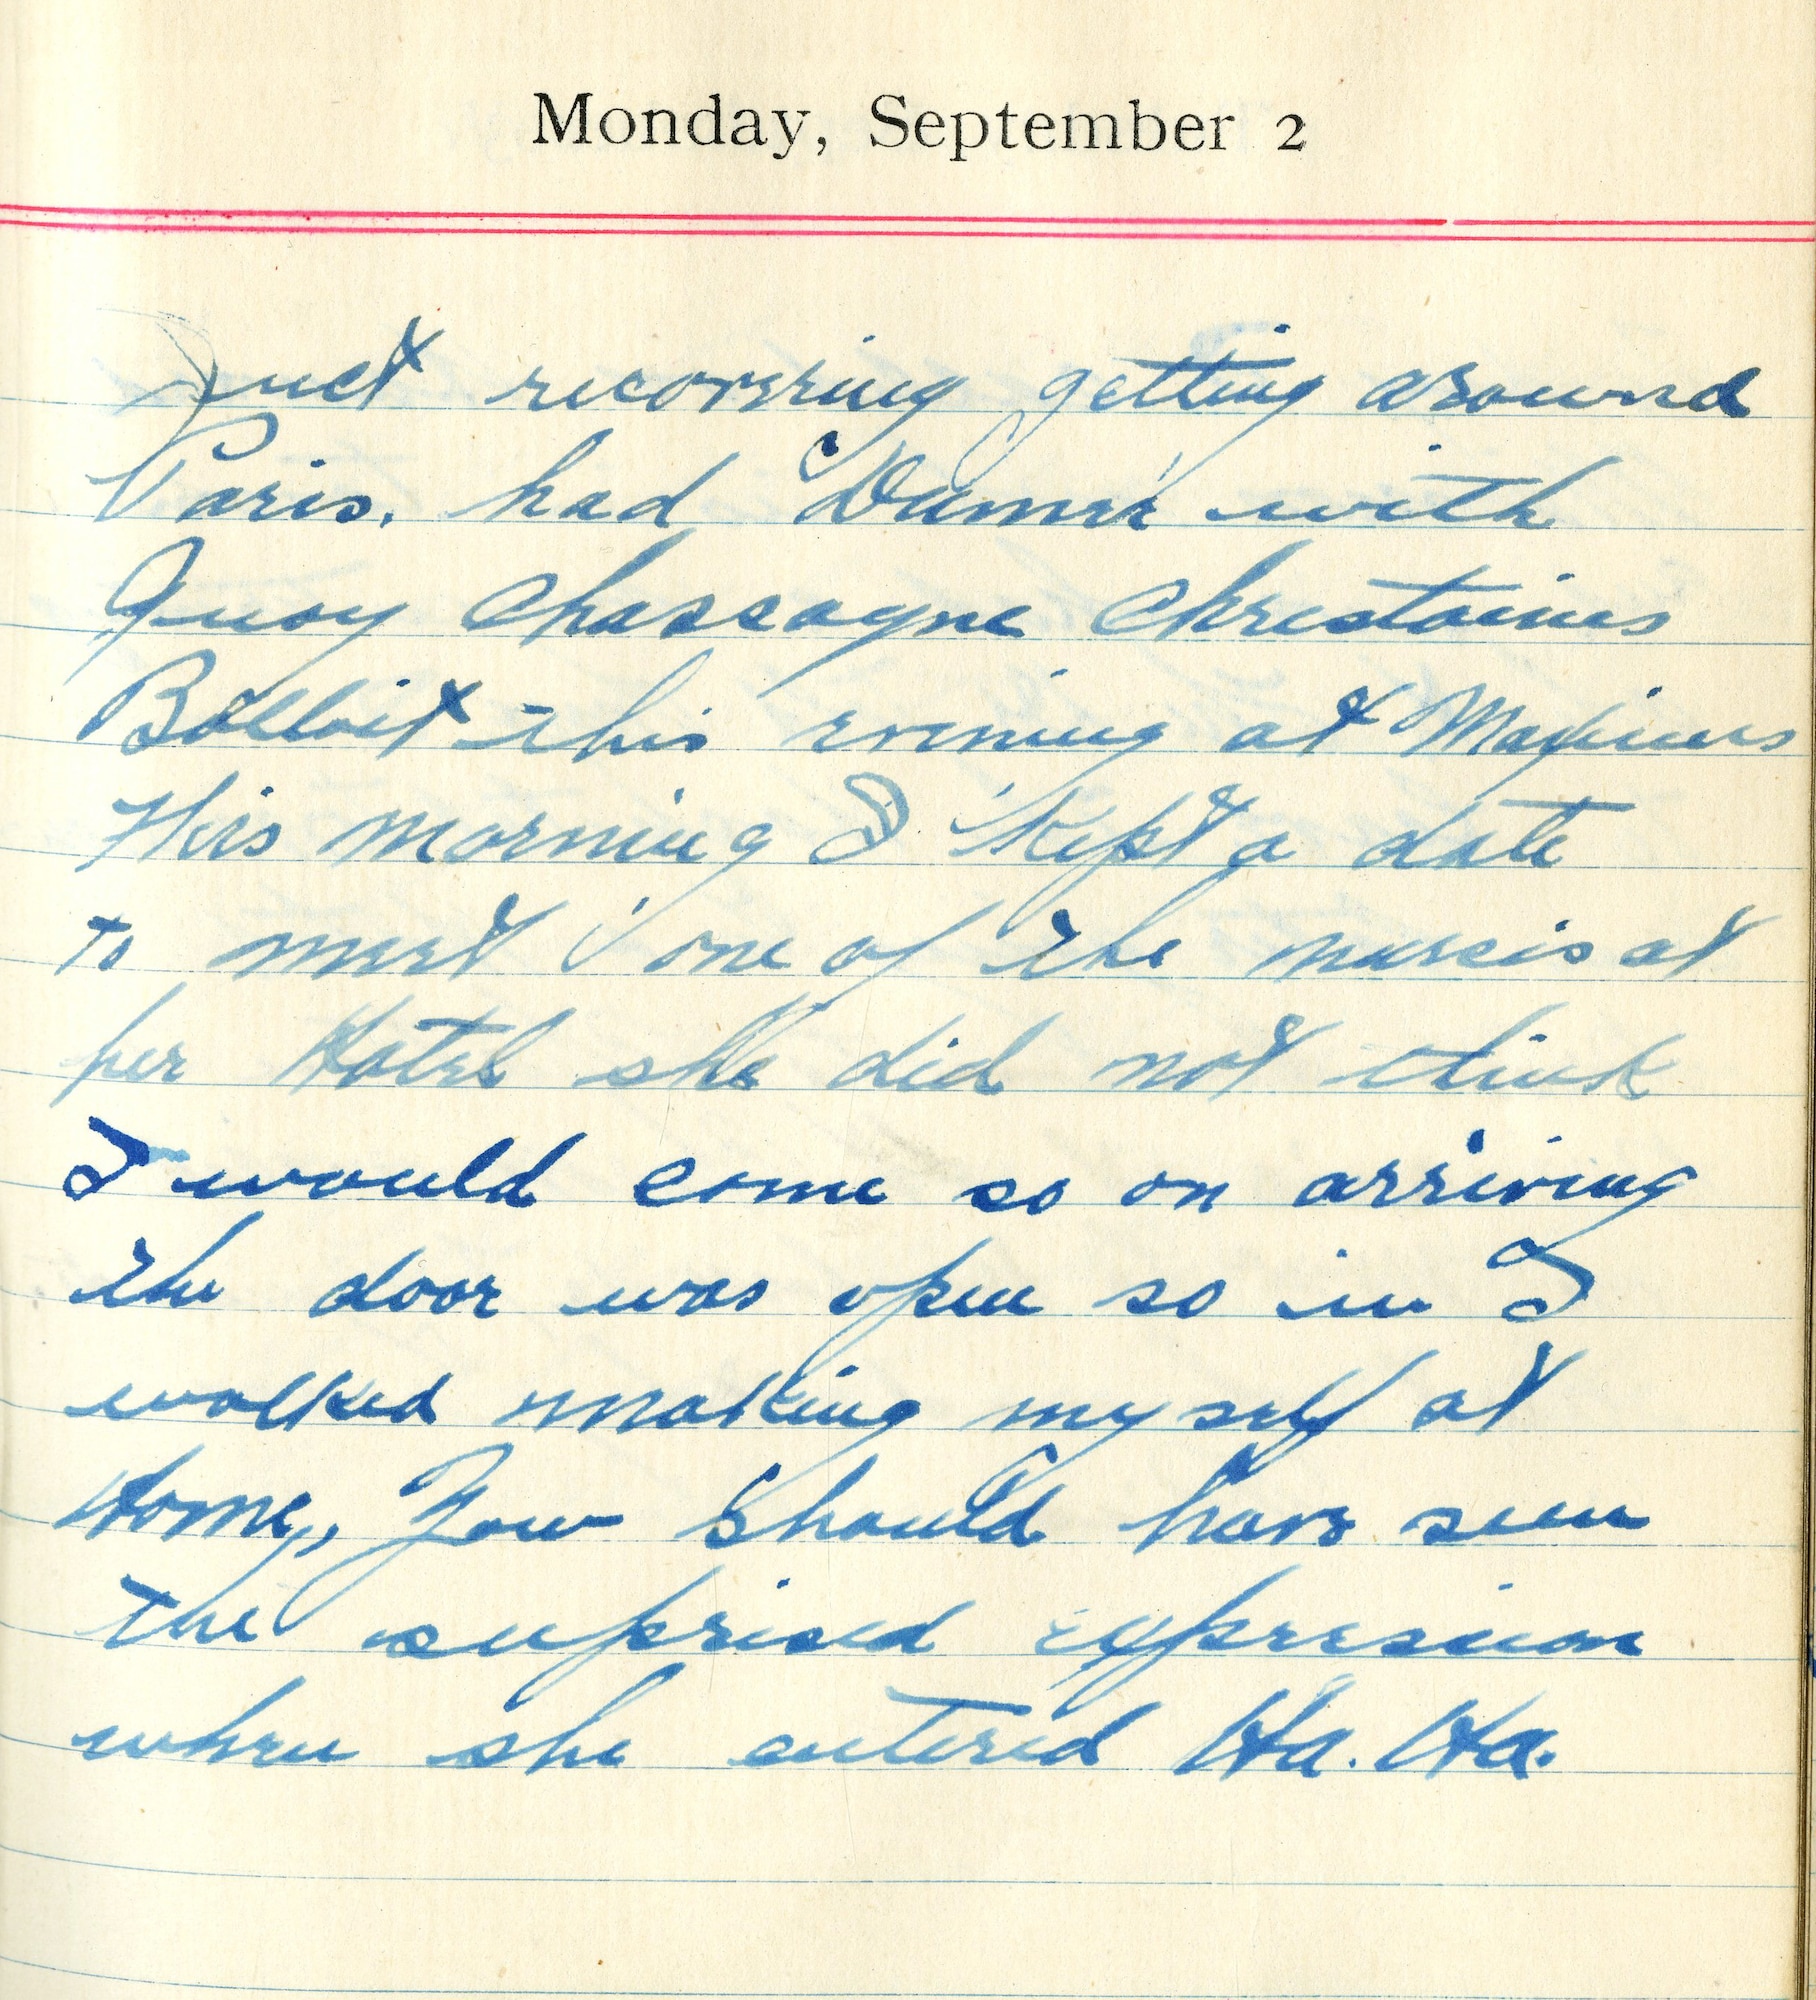 Monday, September 2
Just recovering getting around
Paris. had Dinner with
Quoy Chassagne Chrestaines
this evening at Maxims
This morning I kept a date
to meet one of the nurses at
her Hotel she did not think
I would come so on arriving
the door was open so in I
walked making myself at
Home, You should have seen
the suprised expression
when she entered Ha. Ha.